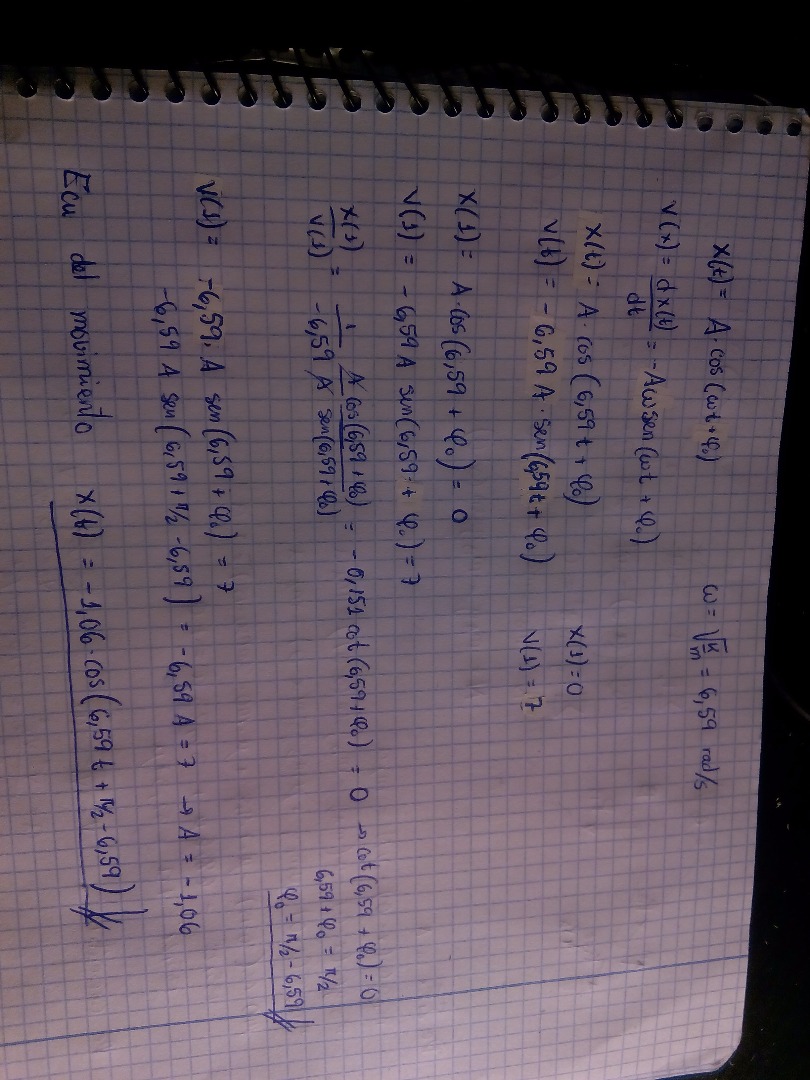 x(t) = A · cos(ωt + φ₀)    ω = √(k/m) = 6,59 rad/s
v(x) = dx(t)/dt = -Aω sen(ωt + φ₀)
x(t) = A · cos(6,59t + φ₀)    x(1) = 0
v(t) = -6,59 A · sen(6,59t + φ₀)    v(1) = 7
x(1) = A · cos(6,59 + φ₀) = 0
v(1) = -6,59 A sen(6,59 + φ₀) = 7
x(1)/v(1) = 1/-6,59 A cos(6,59 + φ₀)/A sen(6,59 + φ₀) = -0,151 cot(6,59 + φ₀) = 0 → cot(6,59 + φ₀) = 0
6,59 + φ₀ = π/2
φ₀ = π/2 - 6,59
v(1) = -6,59 · A sen(6,59 + φ₀) = 7
-6,59 A sen(6,59 + π/2 - 6,59) = -6,59 A = 7 → A = -1,06
Ecu del movimiento    x(t) = -1,06 · cos(6,59 t + π/2 - 6,59)